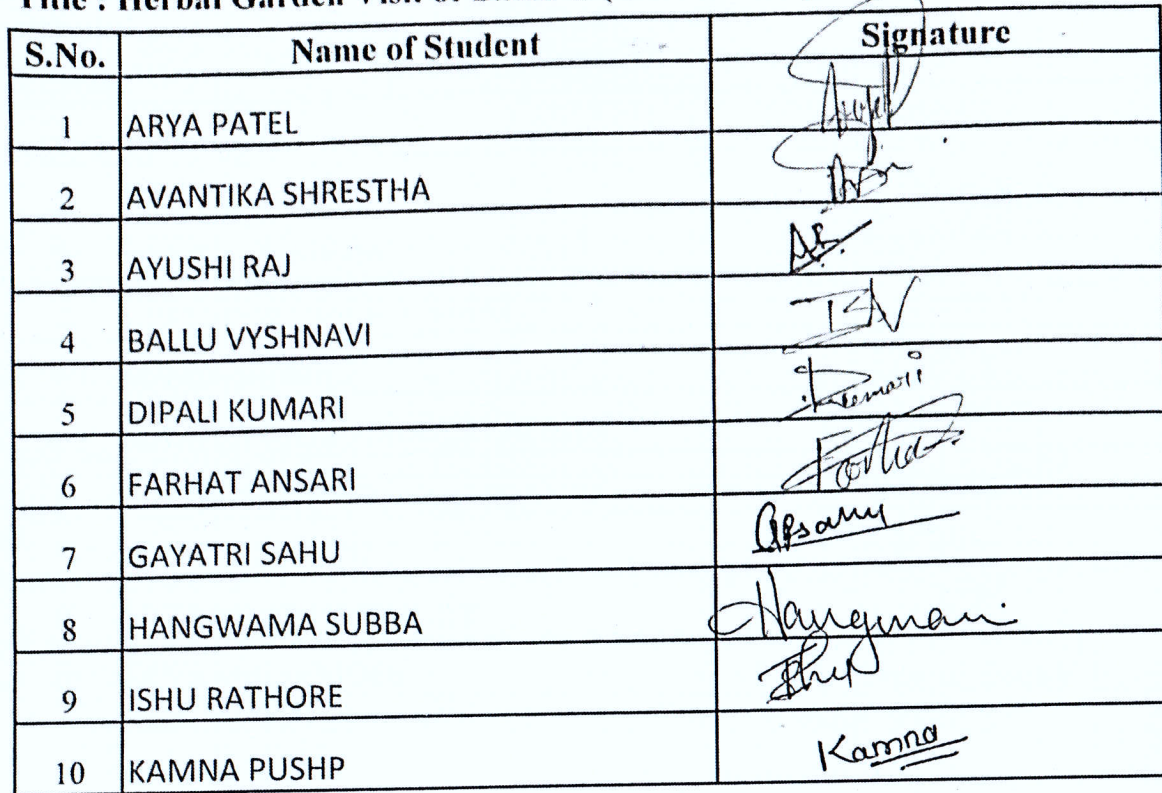 Title : Herbal Garden Visit
S.No. Name of Student Signature
1 ARYA PATEL
2 AVANTIKA SHRESTHA
3 AYUSHI RAJ
4 BALLU VYSHNAVI BV
5 DIPALI KUMARI
6 FARHAT ANSARI
7 GAYATRI SAHU
8 HANGWAMA SUBBA
9 ISHU RATHORE
10 KAMNA PUSHP Kamna